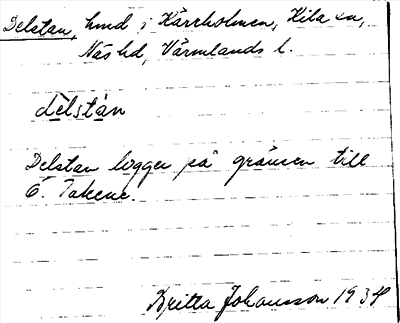 Delstan, hmd i Kärrholmen, Kila sn,
Näs hd, Värmlands l.
dèlstàn
Delstan ligger på gränsen till
Ö. Takene.
Britta Johansson 1934